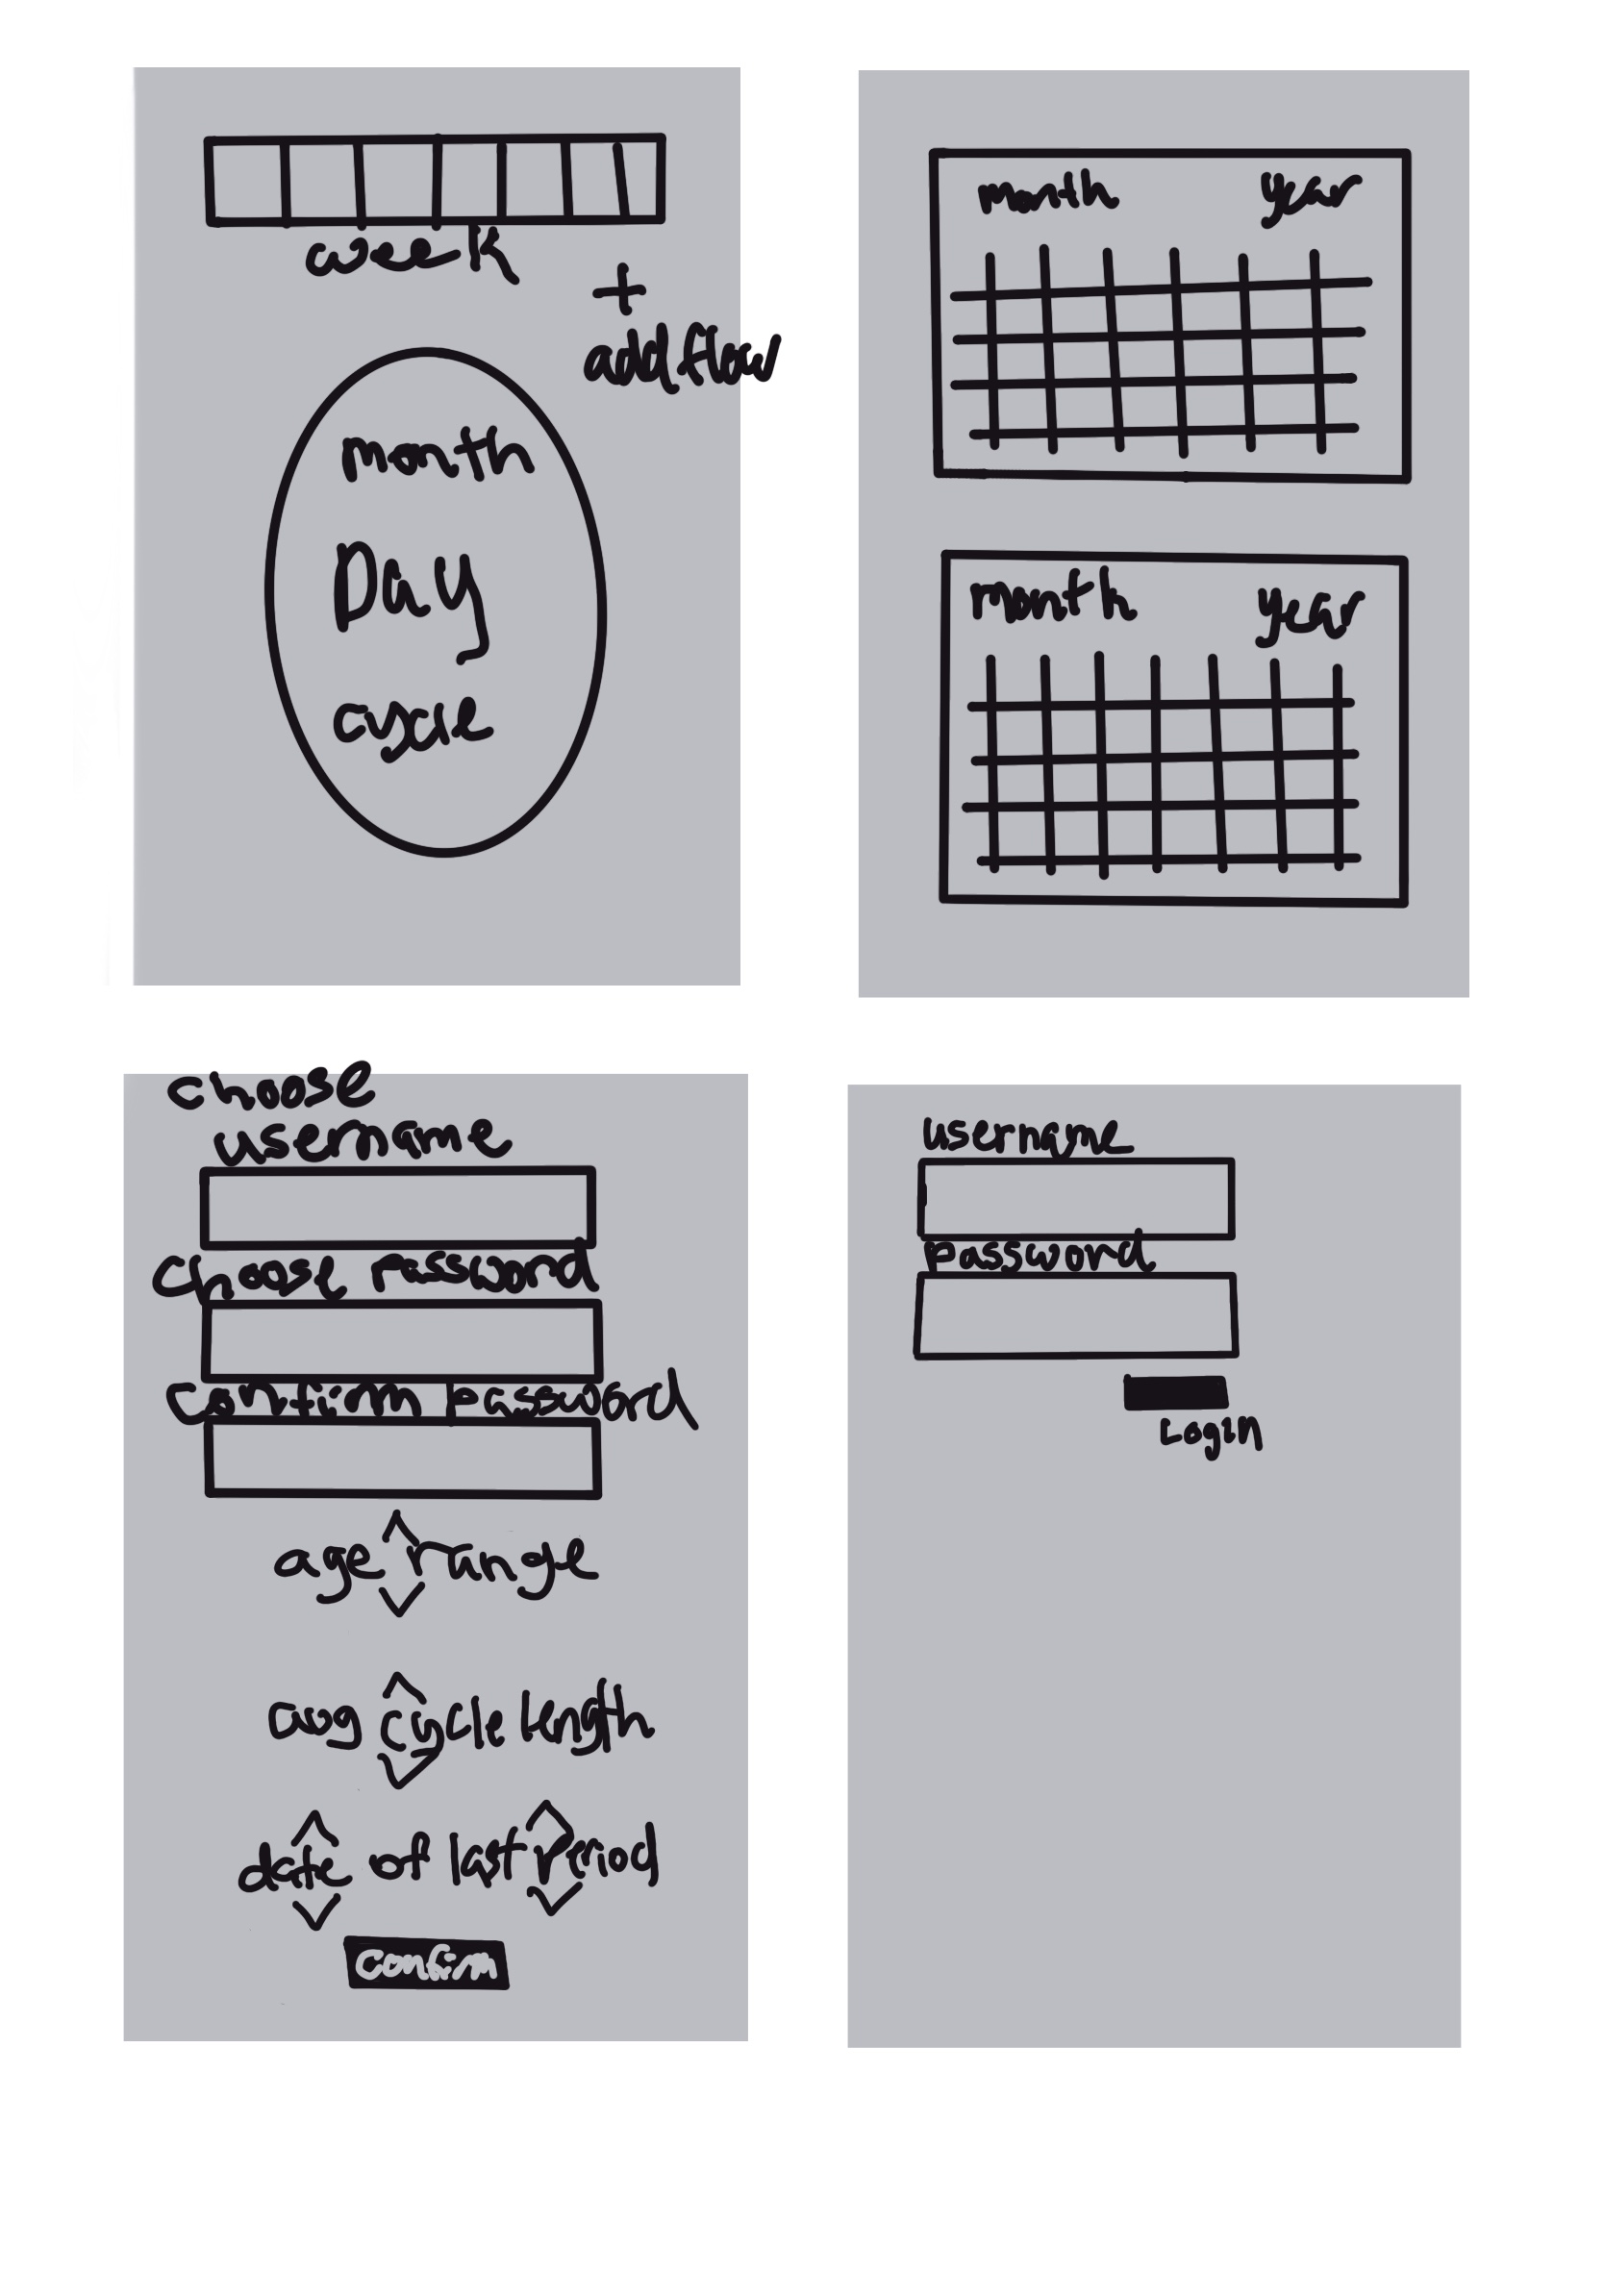 week
+
add flow
month
Day
cycle
month year
month year
choose
username
choose password
confirm password
age range
avg cycle length
date of last period
confirm
username
password
Login